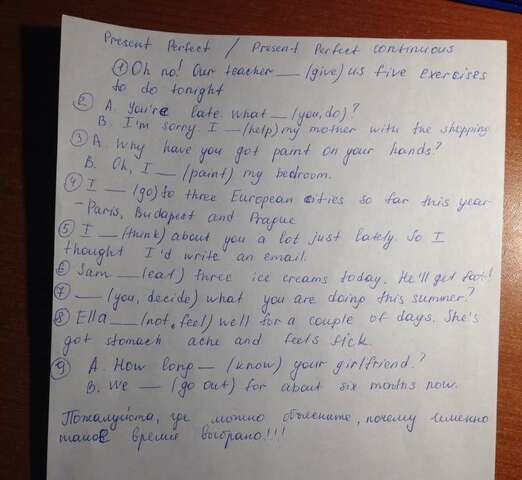 Present Perfect / Present Perfect continuous
① Oh no! Our teacher __ (give) us five exercises
to do tonight
② A. You're late. What __ (you, do)?
B. I'm sorry. I __ (help) my mother with the shopping
③ A. Why have you got paint on your hands?
B. Oh, I __ (paint) my bedroom.
④ I __ (go) to three European cities so far this year
- Paris, Budapest and Prague
⑤ I __ (think) about you a lot just lately. So I
thought I'd write an email.
⑥ Sam __ (eat) three ice creams today. He'll get fat!
⑦ __ (you, decide) what you are doing this summer?
⑧ Ella __ (not, feel) well for a couple of days. She's
got stomach ache and feels sick.
⑨ A. How long __ (know) your girlfriend?
B. We __ (go out) for about six months now.
Пожалуйста, где можно объясните, почему именно
такое время выбрано!!!